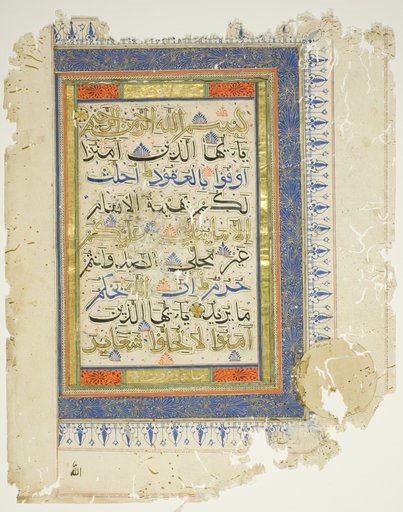 بسم الله الرحمن الرحيم
يايها الذين آمنوا
اوفوا بالعقود احلت
لكم بهيمة الانعام
الا ما يتلى عليكم
غير محلي الصيد وانتم
حرم ان الله يحكم
ما يريد يايها الذين
آمنوا لا تحلوا شعاير
الله